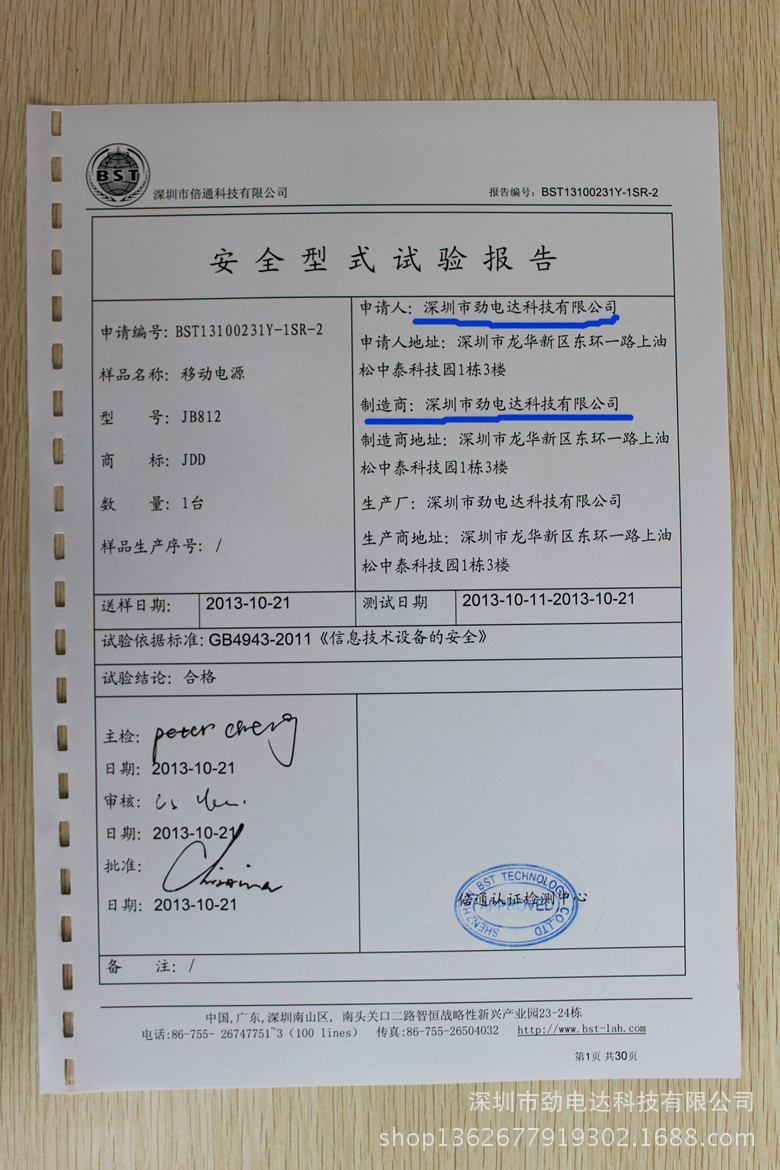 BST
深圳市倍通科技有限公司
报告编号: BST13100231Y-1SR-2
安全型式试验报告
申请编号: BST13100231Y-1SR-2
样品名称: 移动电源
型 号: JB812
商 标: JDD
数 量: 1台
样品生产序号: /
申请人: 深圳市劲电达科技有限公司
申请人地址: 深圳市龙华新区东环一路上油
松中泰科技园1栋3楼
制造商: 深圳市劲电达科技有限公司
制造商地址: 深圳市龙华新区东环一路上油
松中泰科技园1栋3楼
生产厂: 深圳市劲电达科技有限公司
生产商地址: 深圳市龙华新区东环一路上油
松中泰科技园1栋3楼
送样日期: 2013-10-21 测试日期 2013-10-11-2013-10-21
试验依据标准: GB4943-2011《信息技术设备的安全》
试验结论: 合格
主检: peter cheng
日期: 2013-10-21
审核:
日期: 2013-10-21
批准:
日期: 2013-10-21
SHENZHEN BST TECHNOLOGY CO.,LTD
APPROVED
倍通认证检测中心
备 注: /
中国,广东,深圳南山区, 南头关口二路智恒战略性新兴产业园23-24栋
电话:86-755- 26747751~3 (100 lines) 传真:86-755-26504032 http://www.bst-lab.com
第1页 共30页
深圳市劲电达科技有限公司
shop1362677919302.1688.com